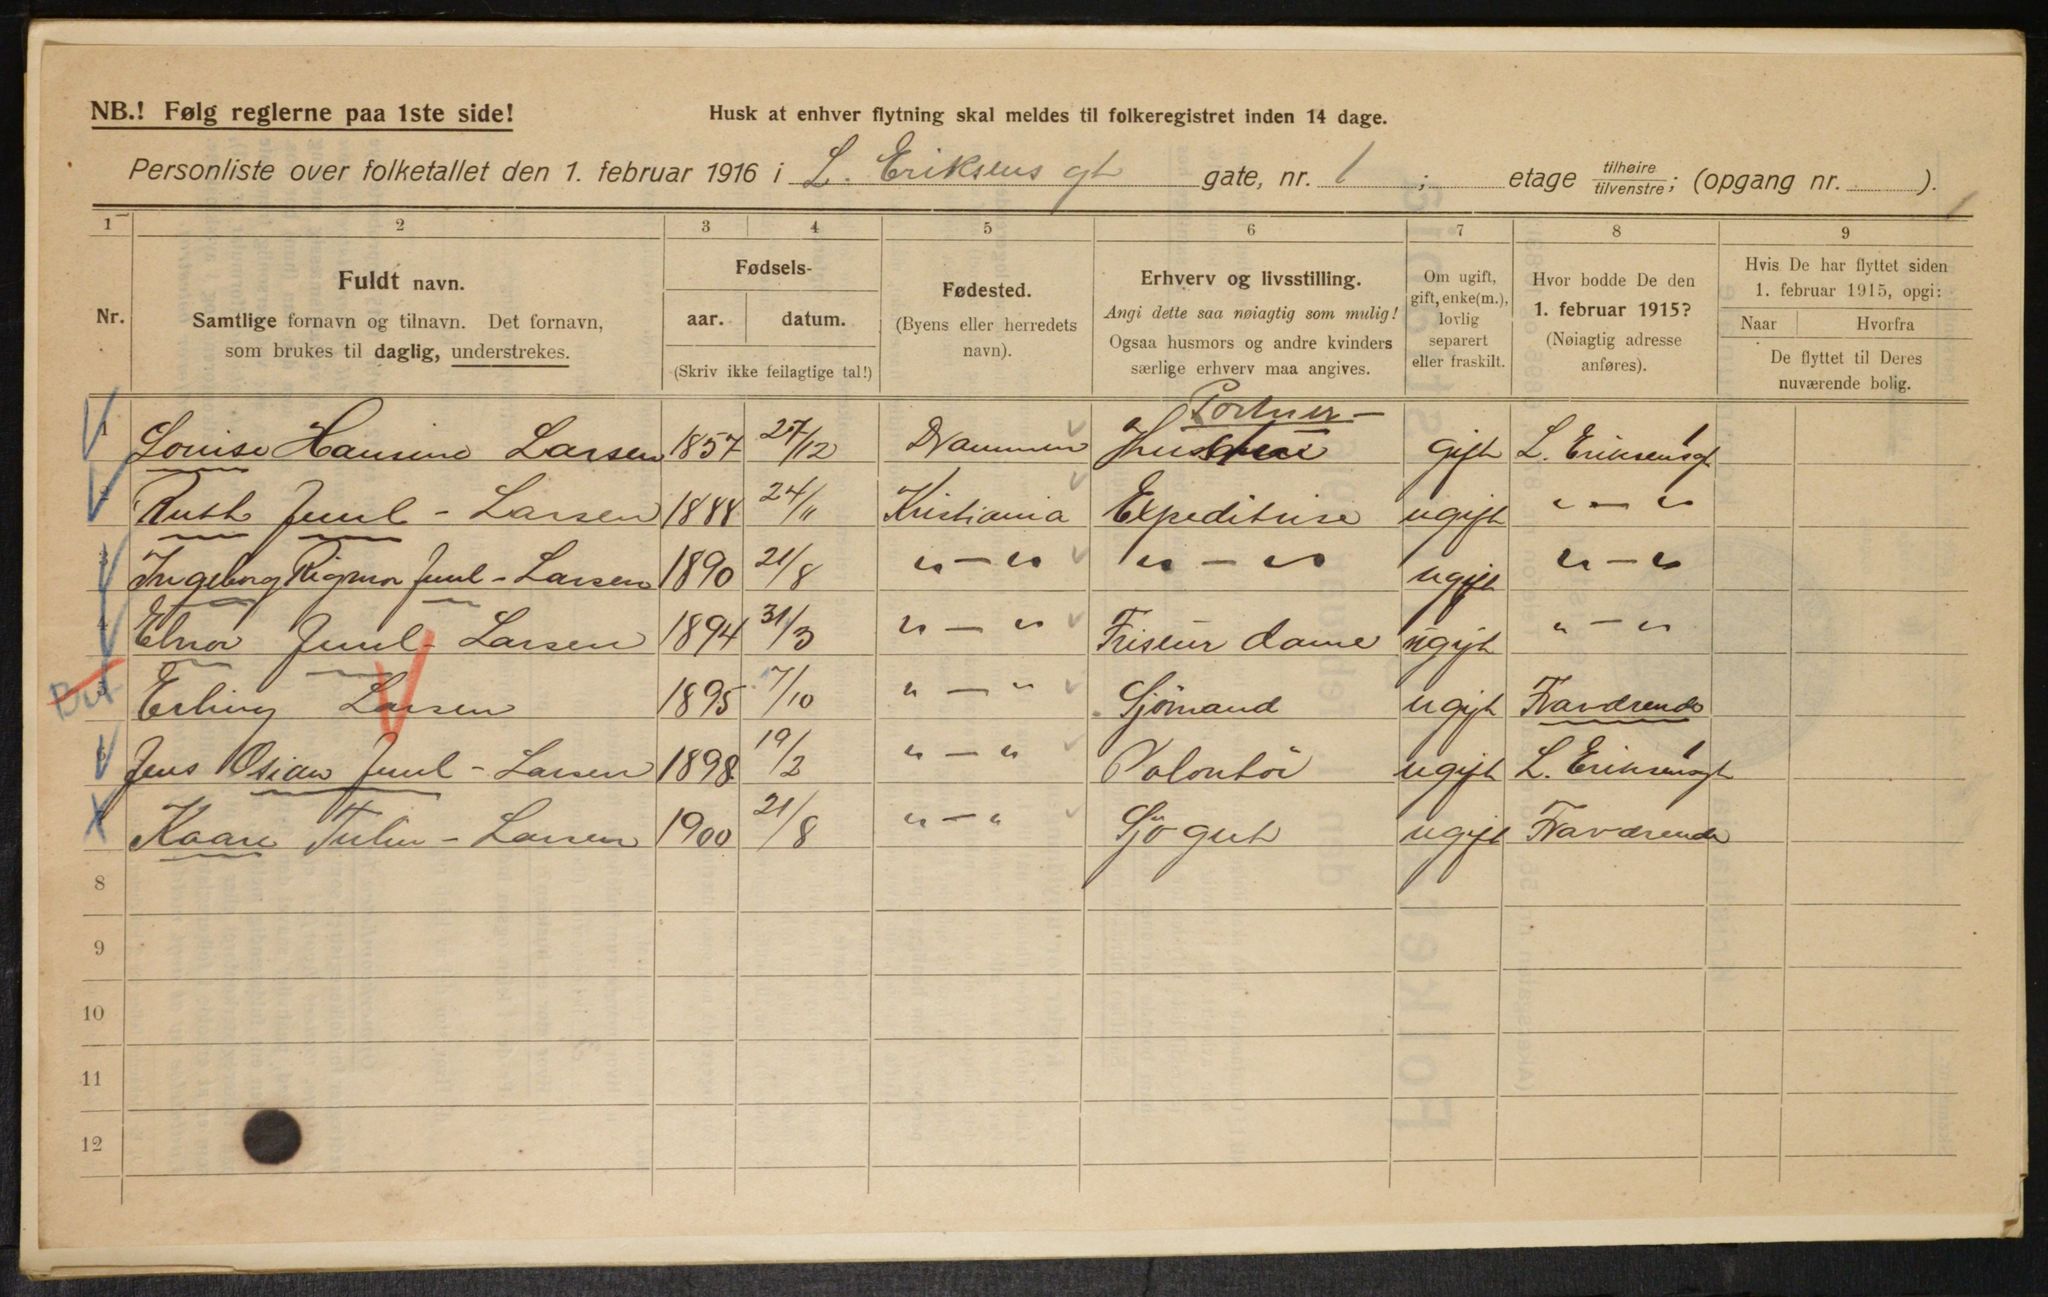 NB.! Følg reglerne paa 1ste side!
Husk at enhver flytning skal meldes til folkeregistret inden 14 dage.
Personliste over folketallet den 1. februar 1916 i L. Eriksens gt gate, nr. 1 ; etage tilhøire/tilvenstre; (opgang nr. ).
1
1 2 3 4 5 6 7 8 9
Nr.
Fuldt navn.
Samtlige fornavn og tilnavn. Det fornavn,
som brukes til daglig, understrekes.
Fødsels-
aar. datum.
(Skriv ikke feilagtige tal!)
Fødested.
(Byens eller herredets
navn).
Erhverv og livsstilling.
Angi dette saa nøiagtig som mulig!
Ogsaa husmors og andre kvinders
særlige erhverv maa angives.
Om ugift,
gift, enke(m.),
lovlig
separert
eller fraskilt.
Hvor bodde De den
1. februar 1915?
(Nøiagtig adresse
anføres).
Hvis De har flyttet siden
1. februar 1915, opgi:
Naar Hvorfra
De flyttet til Deres
nuværende bolig.
Portner –
1 Louise Hansine Larsen 1857 27/12 Drammen gift L. Eriksensgt 1
2 Ruth Juul - Larsen 1888 24/11 Kristiania Expeditrise ugift " — "
3 Ingeborg Rigmor Juul - Larsen 1890 21/8 " — " " — " ugift " — "
4 Elnor Juul - Larsen 1894 31/3 " — " Friseur dame ugift " — "
5 Erling Larsen 1895 7/10 " — " Sjömand ugift Fraværende
6 Jens Osian Juul - Larsen 1898 19/2 " — " Volontör ugift L. Eriksensgt 1
Kaare Larsen 1900 21/8 " — " Sjögut ugift Fraværende
8
9
10
11
12